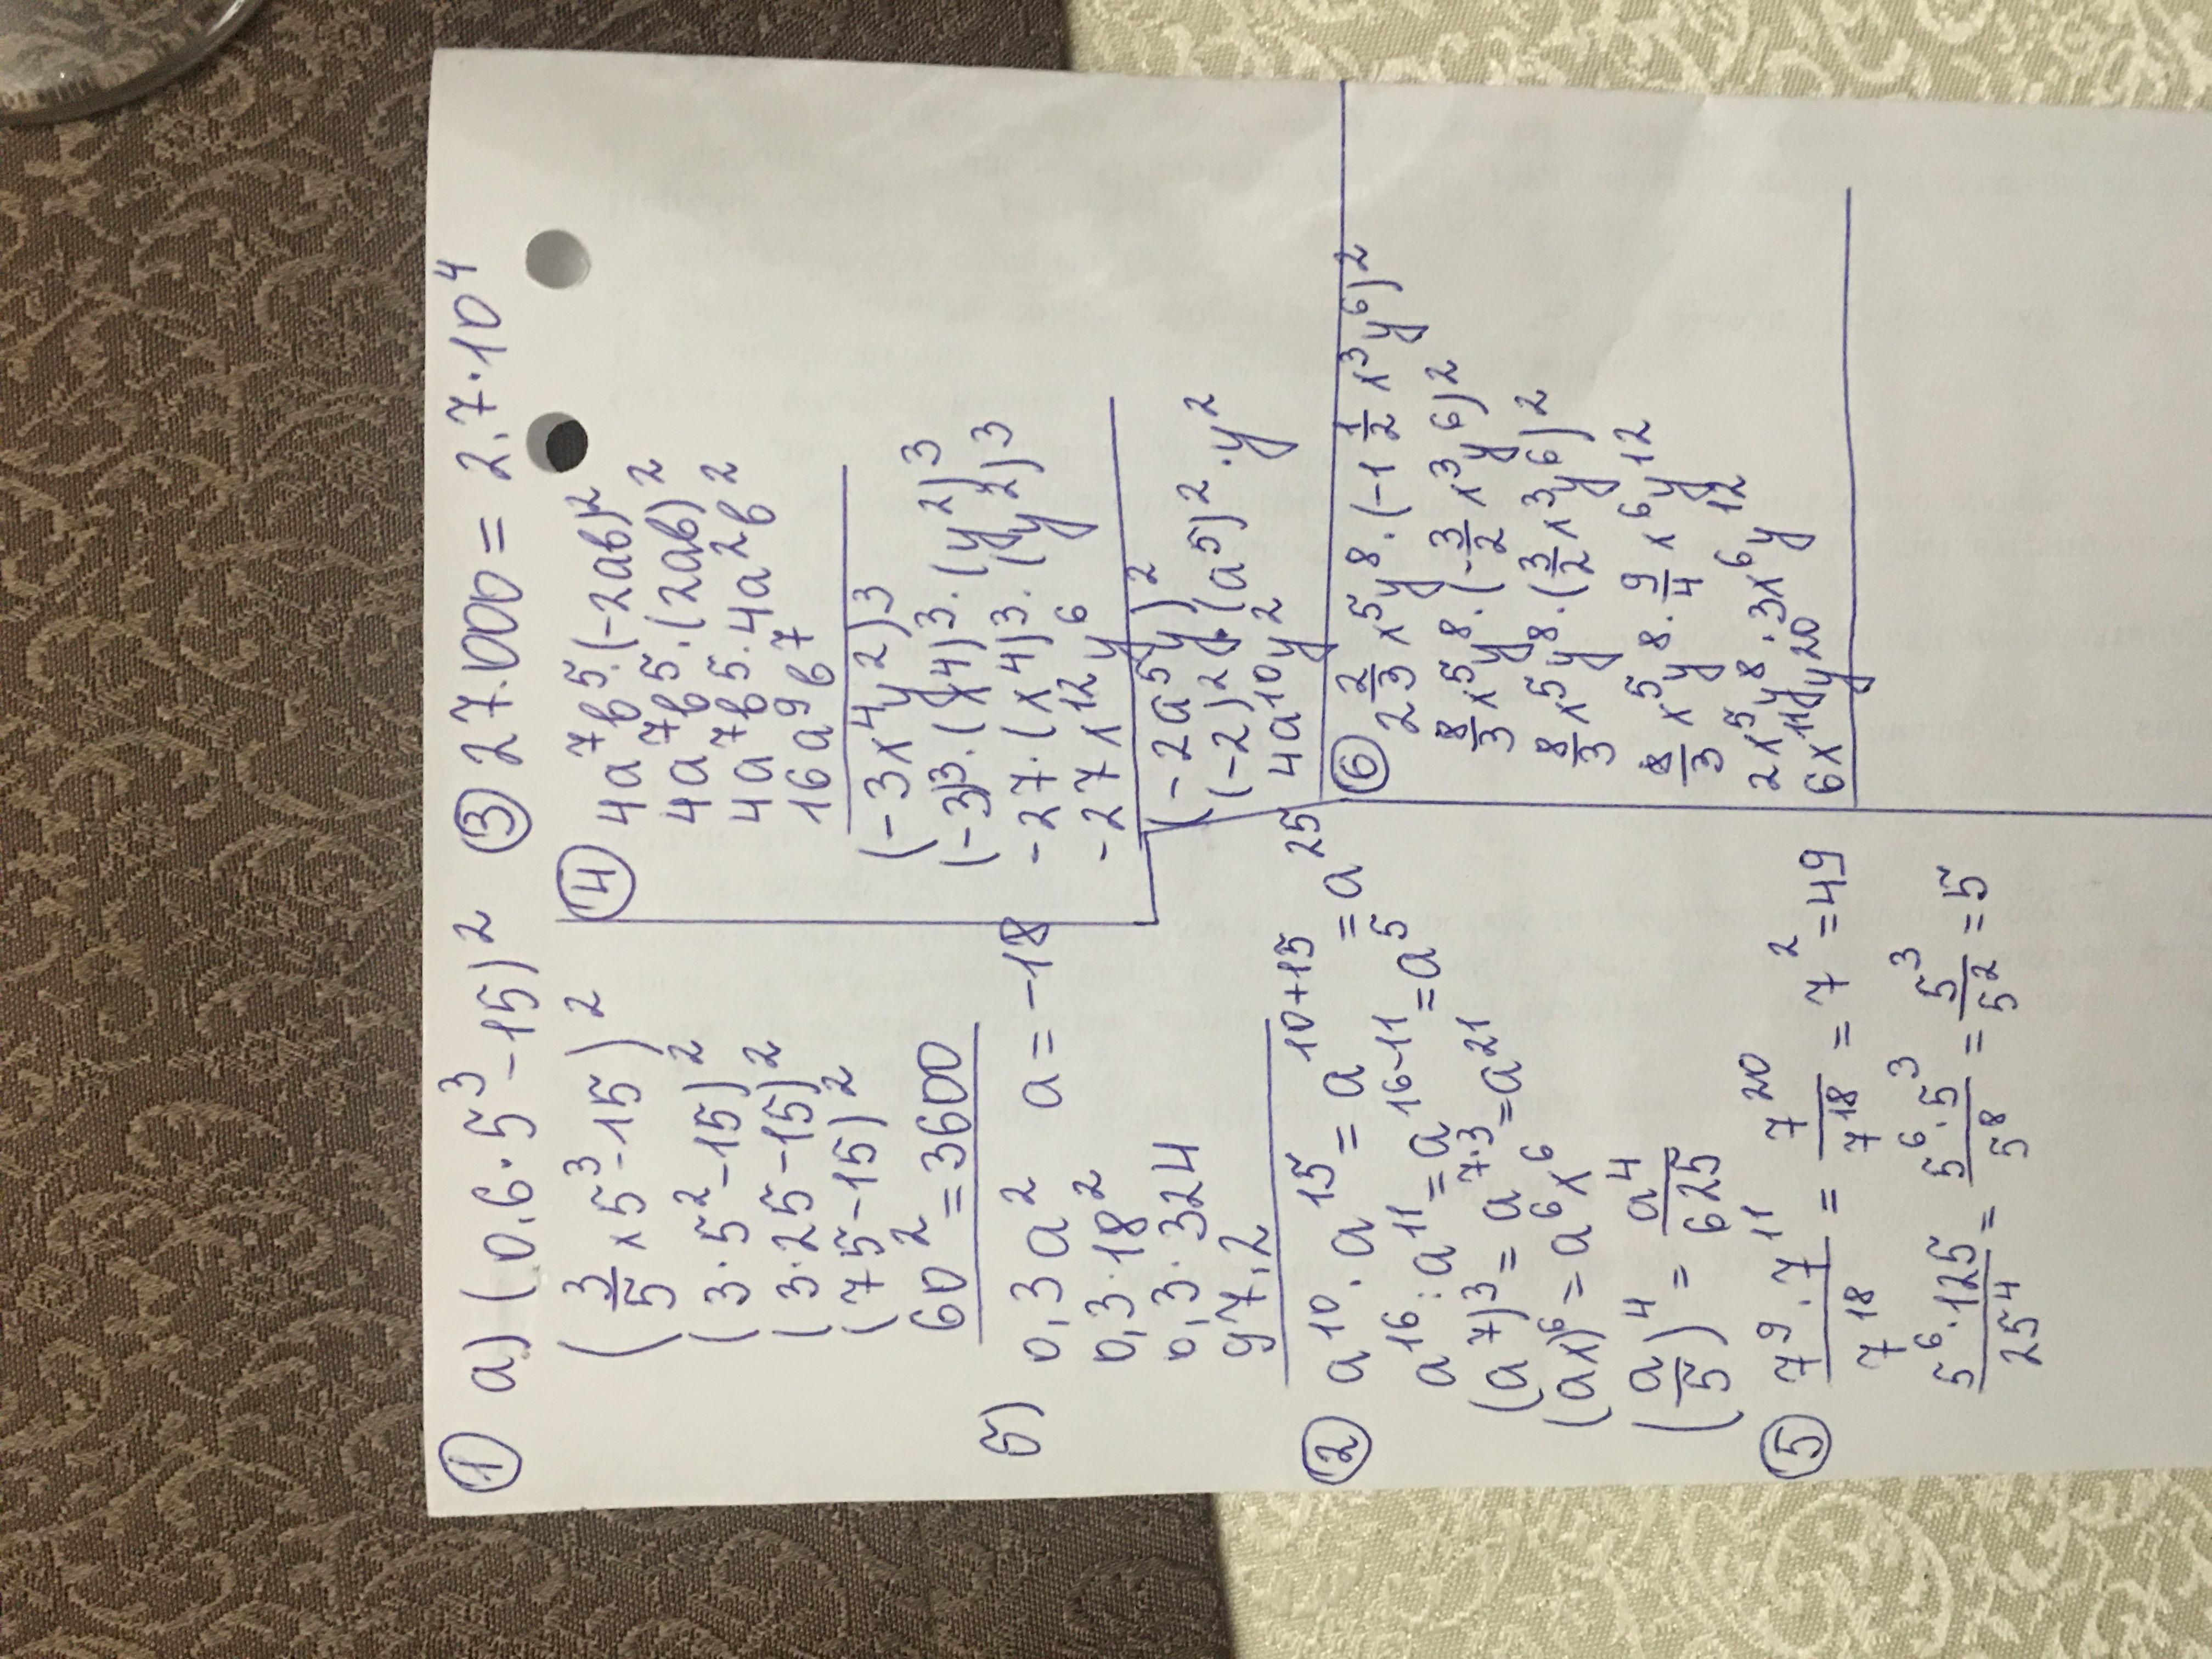 ① а) (0.6·5³-15)²
(3/5 x 5³-15)²
(3·5²-15)²
(3·25-15)²
(75-15)²
60²=3600
б) 0,3a² a=-18
0,3·18²
0,3·324
97.2
② a¹⁰·a¹⁵=a¹⁰⁺¹⁵=a²⁵
a¹⁶:a¹¹=a¹⁶⁻¹¹=a⁵
(a⁷)³=a⁷·³=a²¹
(ax)⁶=a⁶x⁶
(a/5)⁴=a⁴/625
⑤ 7⁹·7¹¹/7¹⁸=7²⁰/7¹⁸=7²=49
5⁶·125/25⁴=5⁶·5³/5⁸=5³/5²=5
③ 27.000=2.7·10⁴
④ 4a⁷b⁵·(-2ab)²
4a⁷b⁵·(2ab)²
4a⁷b⁵·4a²b²
16a⁹b⁷
(-3x⁴y²)³
(-3)³·(x⁴)³·(y²)³
-27·(x⁴)³·(y²)³
-27x¹²y⁶
(-2a⁵y)²
(-2)²·(a⁵)²·y²
4a¹⁰y²
⑥ 2 2/3 x⁵y⁸·(-1 1/2 x³y⁶)²
8/3 x⁵y⁸·(-3/2 x³y⁶)²
8/3 x⁵y⁸·(3/2 x³y⁶)²
8/3 x⁵y⁸·9/4 x⁶y¹²
2x⁵y⁸·3x⁶y¹²
6x¹¹y²⁰